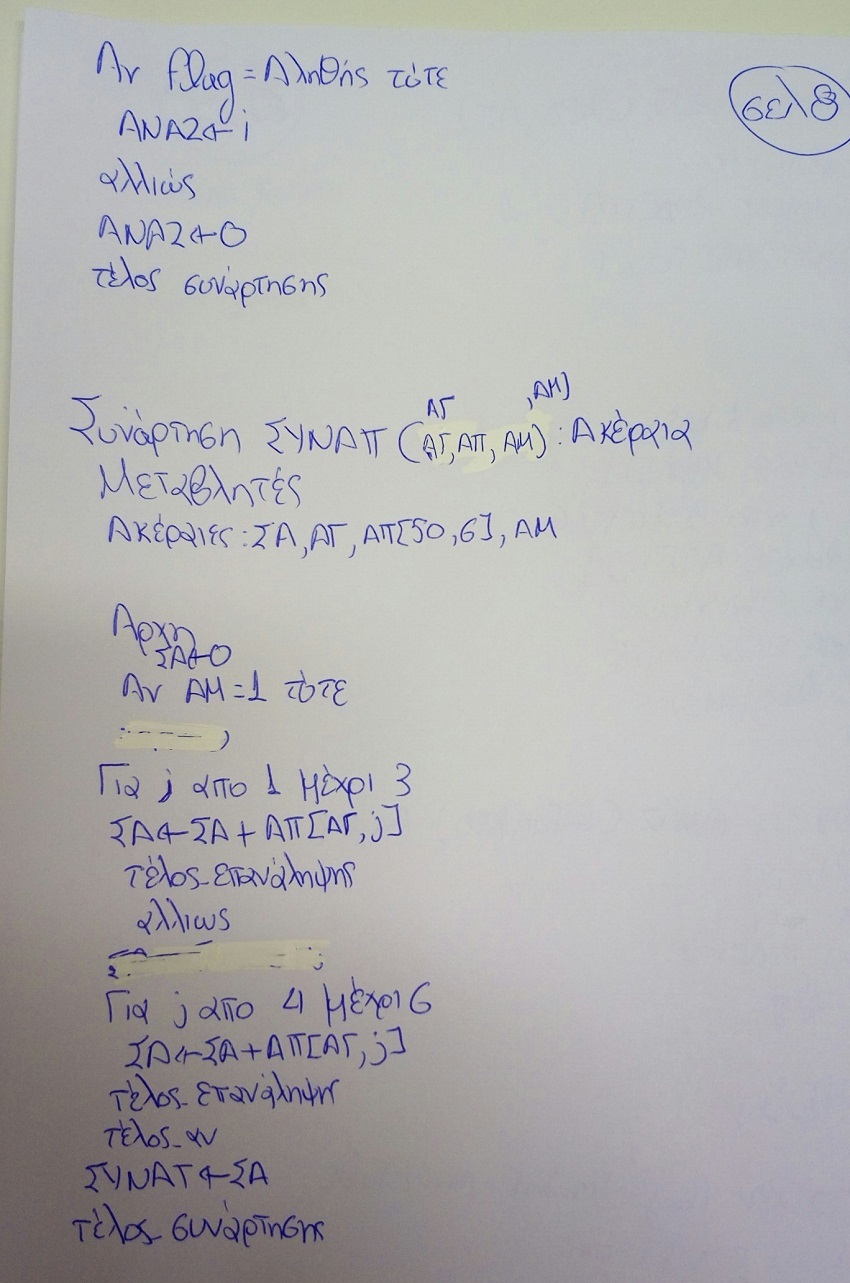 Αν flag = Αληθής τότε
σελ 8
ΑΝΑΖ ← i
αλλιώς
ΑΝΑΖ ← 0
τέλος συνάρτησης
ΑΓ , ΑΜ)
Συνάρτηση ΣΥΝΑΠ (ΑΓ, ΑΠ, ΑΜ) : Ακέραια
Μεταβλητές
Ακέραιες : ΣΑ, ΑΓ, ΑΠ[50,6], ΑΜ
Αρχη
ΣΑ ← 0
Αν ΑΜ = 1 τότε
Για j από 1 μέχρι 3
ΣΑ ← ΣΑ + ΑΠ[ΑΓ, j]
τέλος_επανάληψης
αλλιως
Για j απο 4 μέχρι 6
ΣΑ ← ΣΑ + ΑΠ[ΑΓ, j]
τέλος_επανάληψης
τέλος_αν
ΣΥΝΑΤ ← ΣΑ
τέλος_συνάρτησης